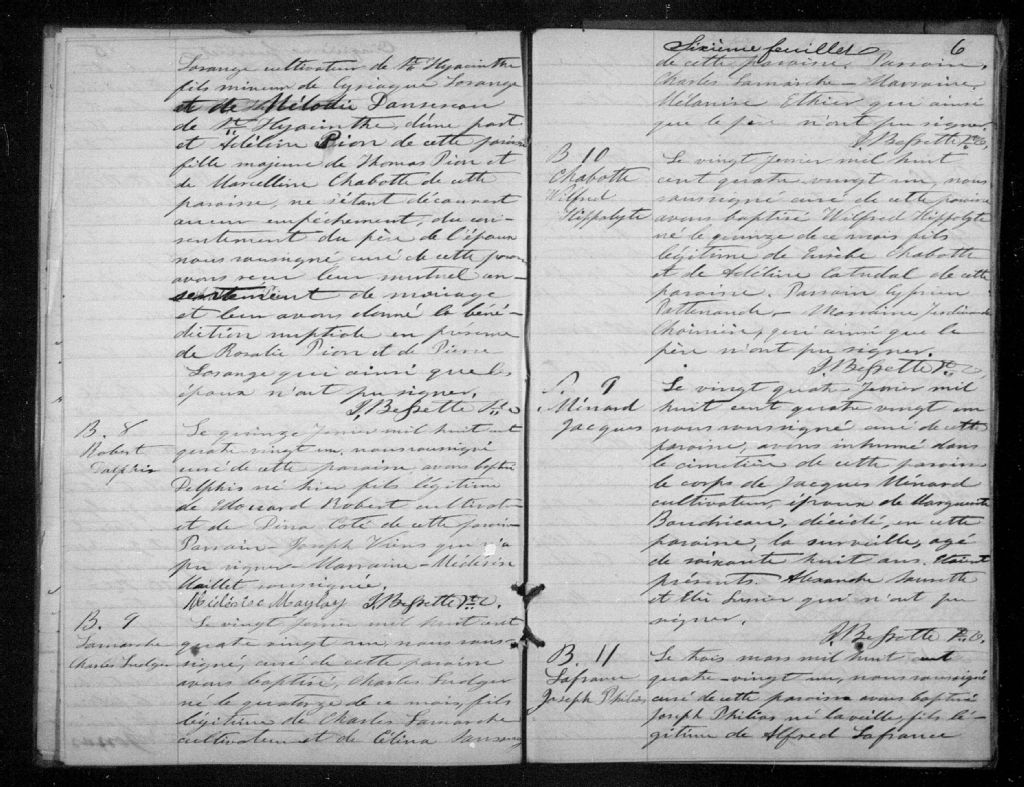 Losange cultivateur de St Hyacinthe
fils mineur de Cyriaque Losange
et de Mélodie Dansereau
de St Hyacinthe, d'une part
et Adéline Pion de cette paroisse
fille majeure de Thomas Pion et
de Marcelline Chabotte de cette
paroisse, ne s'étant découvert
aucun empêchement, du con-
sentement du père de l'époux
nous soussigné curé de cette paroisse
avons reçu leur mutuel con-
sentement de mariage
et leur avons donné la béné-
diction nuptiale en présence
de Rosalie Pion et de Pierre
Losange qui ainsi que les
époux n'ont pu signer.
J. Bessette Ptre C
B. 8
Robert
Delphis
Le quinze Fevrier mil huit cent
quatre vingt un, nous soussigné
curé de cette paroisse avons baptisé
Delphis né hier fils légitime
de Edouard Robert cultivateur
et de Dina Coté de cette paroisse
Parrain - Joseph Viens qui n'a
pu signer - Marraine - Médérise
Maillet soussignée.
Médérise Maylay J. Bessette Ptre C.
B. 9
Lamarche
Charles Ludger
Le vingt fevrier mil huit cent
quatre vingt un, nous sous-
signé, curé de cette paroisse
avons baptisé, Charles Ludger
né le quatorze de ce mois, fils
légitime de Charles Lamarche
cultivateur et de Célina
Sixième feuillet 6
de cette paroisse. Parrain,
Charles Lamarche - Marraine,
Mélanise Ethier qui ainsi
que le père n'ont pu signer
J. Bessette Ptre C.
B 10
Chabotte
Wilfred
Hippolyte
Le vingt fevrier mil huit
cent quatre vingt un, nous
soussigné curé de cette paroisse
avons baptisé Wilfred Hippolyte
né le quinze de ce mois fils
légitime de Eusèbe Chabotte
et de Adéline Catudal de cette
paroisse. Parrain Cyprien
Pattenaude - Marraine
qui ainsi que le
père n'ont pu signer.
J. Bessette Ptre C.
S. 9
Ménard
Jacques
Le vingt quatre Fevrier mil
huit cent quatre vingt un
nous soussigné curé de cette
paroisse, avons inhumé dans
le cimetière de cette paroisse
le corps de Jacques Ménard
cultivateur, époux de Marguerite
Boudreau, décédé, en cette
paroisse, la surveille, agé
de soixante huit ans. Etaient
présents. Alexandre
et qui n'ont pu
signer.
J. Bessette Ptre C.
B. 11
Lafrance
Joseph Philias
Le trois mars mil huit cent
quatre-vingt un, nous soussigné
curé de cette paroisse avons baptisé
Joseph Philias né la veille, fils lé-
gitime de Alfred Lafrance